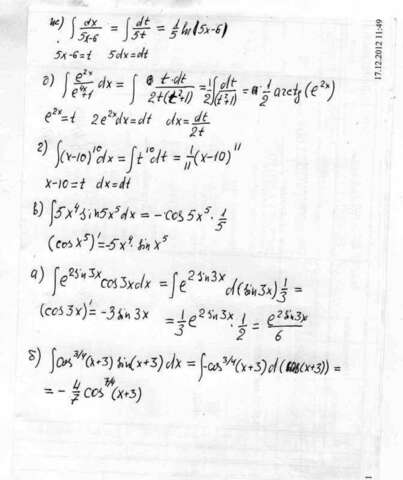 ж) ∫ dx/(5x-6) = ∫ dt/(5t) = 1/5 ln(5x-6)
5x-6=t 5dx=dt
д) ∫ e^(2x)/(e^(4x)+1) dx = ∫ t·dt/(2t(t²+1)) = 1/2 ∫ dt/(t²+1) = 1/2 arctg(e^(2x))
e^(2x)=t 2e^(2x)dx=dt dx=dt/(2t)
г) ∫(x-10)^10 dx = ∫t^10 dt = 1/11 (x-10)^11
x-10=t dx=dt
в) ∫5x⁴ sin5x⁵dx = -cos5x⁵·1/5
(cosx⁵)'=-5x⁴·sinx⁵
а) ∫e^(2sin3x) cos3xdx = ∫e^(2sin3x) d(sin3x) 1/3 =
(cos3x)'=-3sin3x = 1/3 e^(2sin3x)·1/2 = e^(2sin3x)/6
б) ∫cos^(3/4)(x+3) sin(x+3)dx = ∫-cos^(3/4)(x+3)d(cos(x+3)) =
= -4/7 cos^(7/4)(x+3)
17.12.2012 11:49